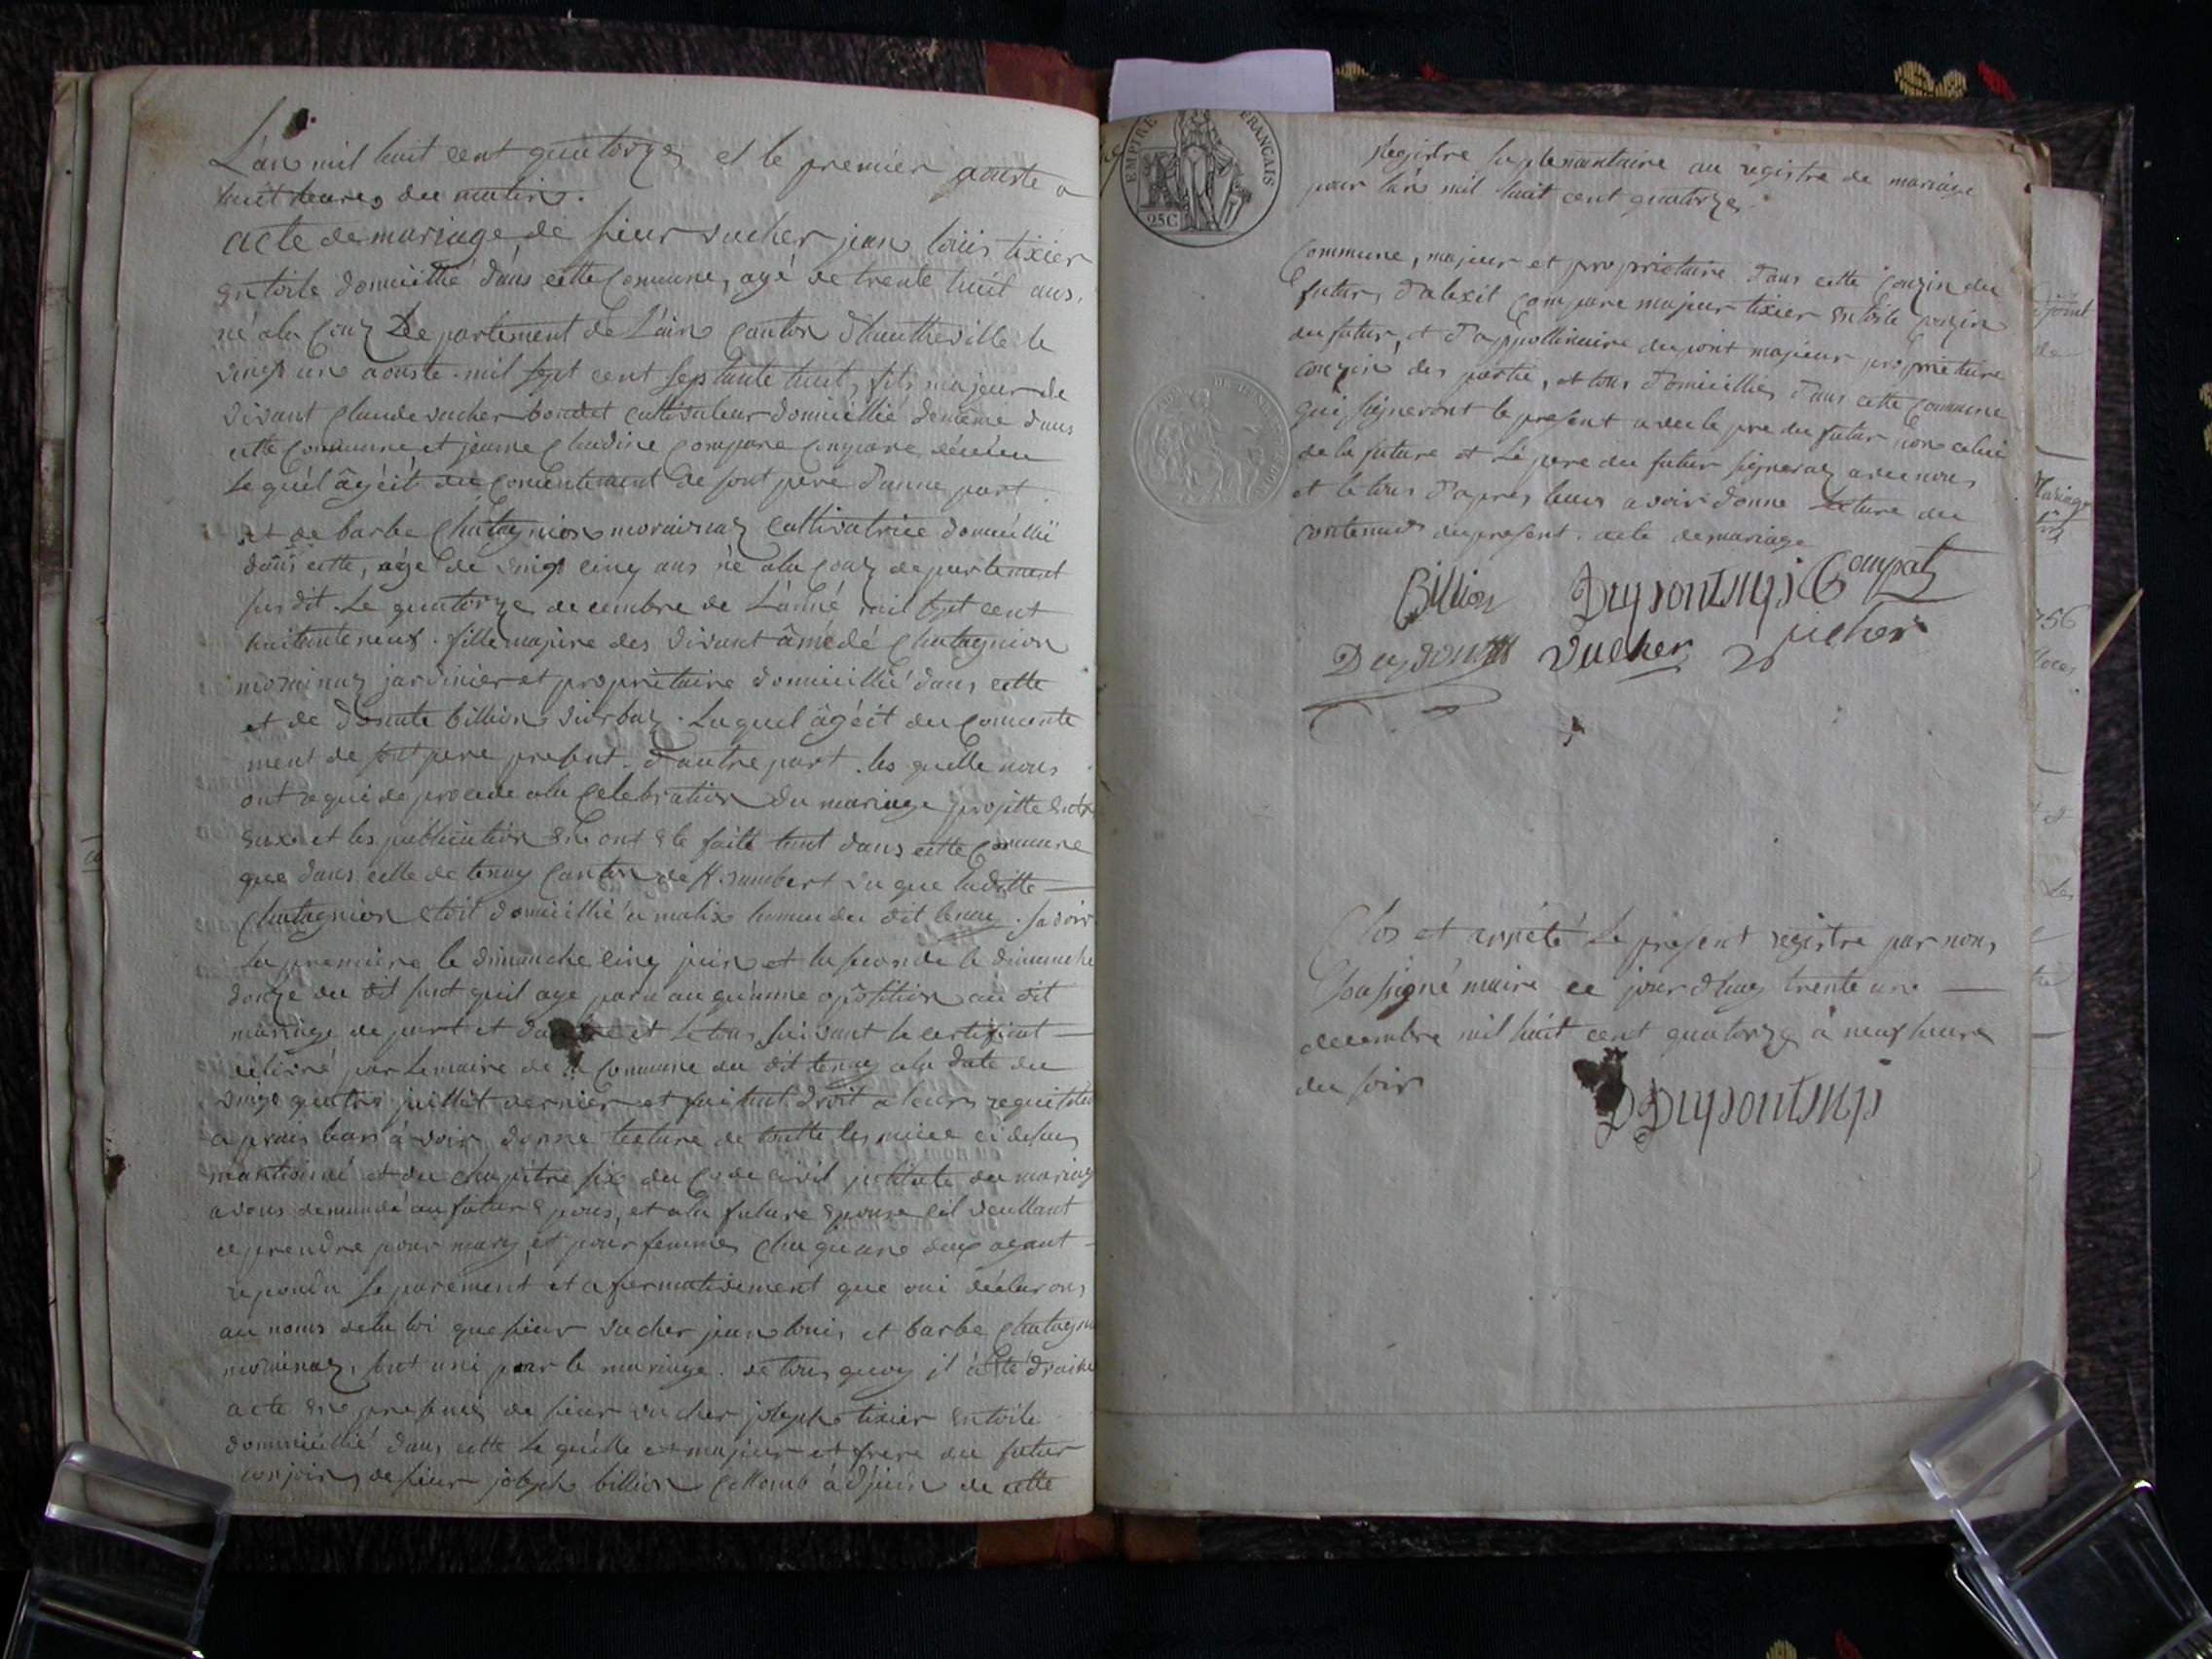 L'an mil huit cent quatorze et le premier aouste a
huit heures du matin.
acte de mariage de sieur vucher jean louis tixier
en toile domicillié dans cette Commune, agé de trente huit ans,
né a la Departement de L'ain Canton d'hautheville le
vingt un aouste mil sept cent septante huit, fils majeur de
vivant Claude vucher bondet cultivateur domicillié de même dans
cette Commune et jeanne Claudine Compare
Le quél âgéit du Consentement de sont pere d'unne part.
et de barbe Chatagnion morainaz Cultivatrice domicillié
dans cette, agé de vingt cinq ans né a la departement
susdit Le quatorze decembre de L'anné mil sept cent
huitante neuf. fille majure des vivant âmédé Chatagnion
morainaz jardinier et proprietaire domicillié dans cette
et de billion Laquel âgéit du Consente
ment de sont pere present. d'autre part. les quelle nous
ont requi de procede a la Celebration du mariage projitte entre
eux et les publication en ont ete faite tant dans cette Commune
que dans celle de tenay Canton de St. rambert vu que laditte
Chatagnion etoit domicillié a du dit tenay. savoir
la premiere le dimanche cinq juin et la seconde le dimanche
douze du dit sant quil aye paru auqu'unne opôsition au dit
mariage de part et et le tous suivant le certificat
délivré par Le maire de la Commune du dit tenay a la date du
vingt quatre juillet dernier et faisant droit a leurs
a prais leurs avoir donne lecture de toutte les ci desus
mantionné et du chapitre six du Code civil du mariage
avons demandé au futur epous, et a la future epouse cil veullant
ce prendre pour mary et pour femme, Chaquune deux ayant
repondu separement et afermativement que oui déclarons
au noms de la loi que sieur vucher jean louis et barbe Chatagnion
morainaz, sont uni par le mariage. de tous quoy il a été
acte en presence de sieur vucher joseph tixier en toile
domicillié dans cette Le quélle et majeur et frere du futur
conjoin, de sieur joseph billion Collomb adjoin de cette
EMPIRE FRANÇAIS
25C
Registre suplemantaire au registre de mariage
pour l'an mil huit cent quatorze.
Commune, majeur et proprietaire dans cette Couzin du
futur, d'alexit Compare majeur tixier en toile couzin
du futur, et d'appollinaire dupont majeur proprietaire
couzin des partie, et tous domicillies dans cette Commune
qui signeront le present avec le pere du futur non celui
de la future et Le pere du futur signeraz avec nous
et le tous d'apres leurs avoir donne lecture du
contenus du present. acte de mariage
Billion Dupont Compat
Dupont vucher vucher
Clos et arrêté Le present registre par nous,
soussigné maire ce jourd'huy trente une
decembre mil huit cent quatorze à neuf heure
du soir
Dupont